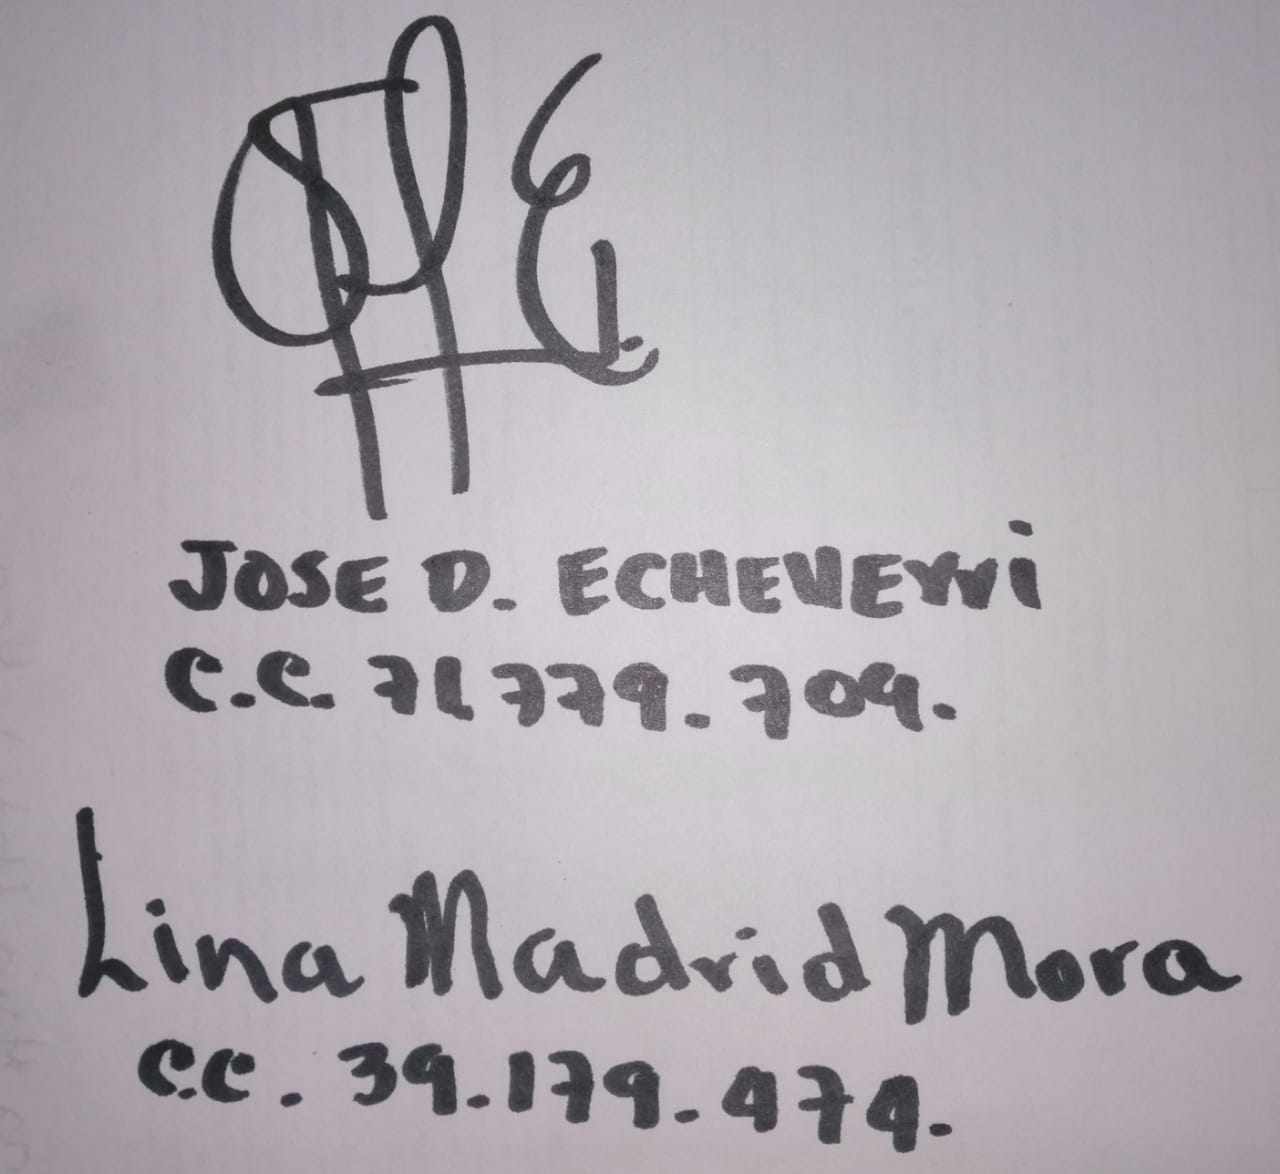 JOSE D. ECHEVERRi
C.C. 71779.709.
Lina Madrid Mora
C.C. 39.179.474.